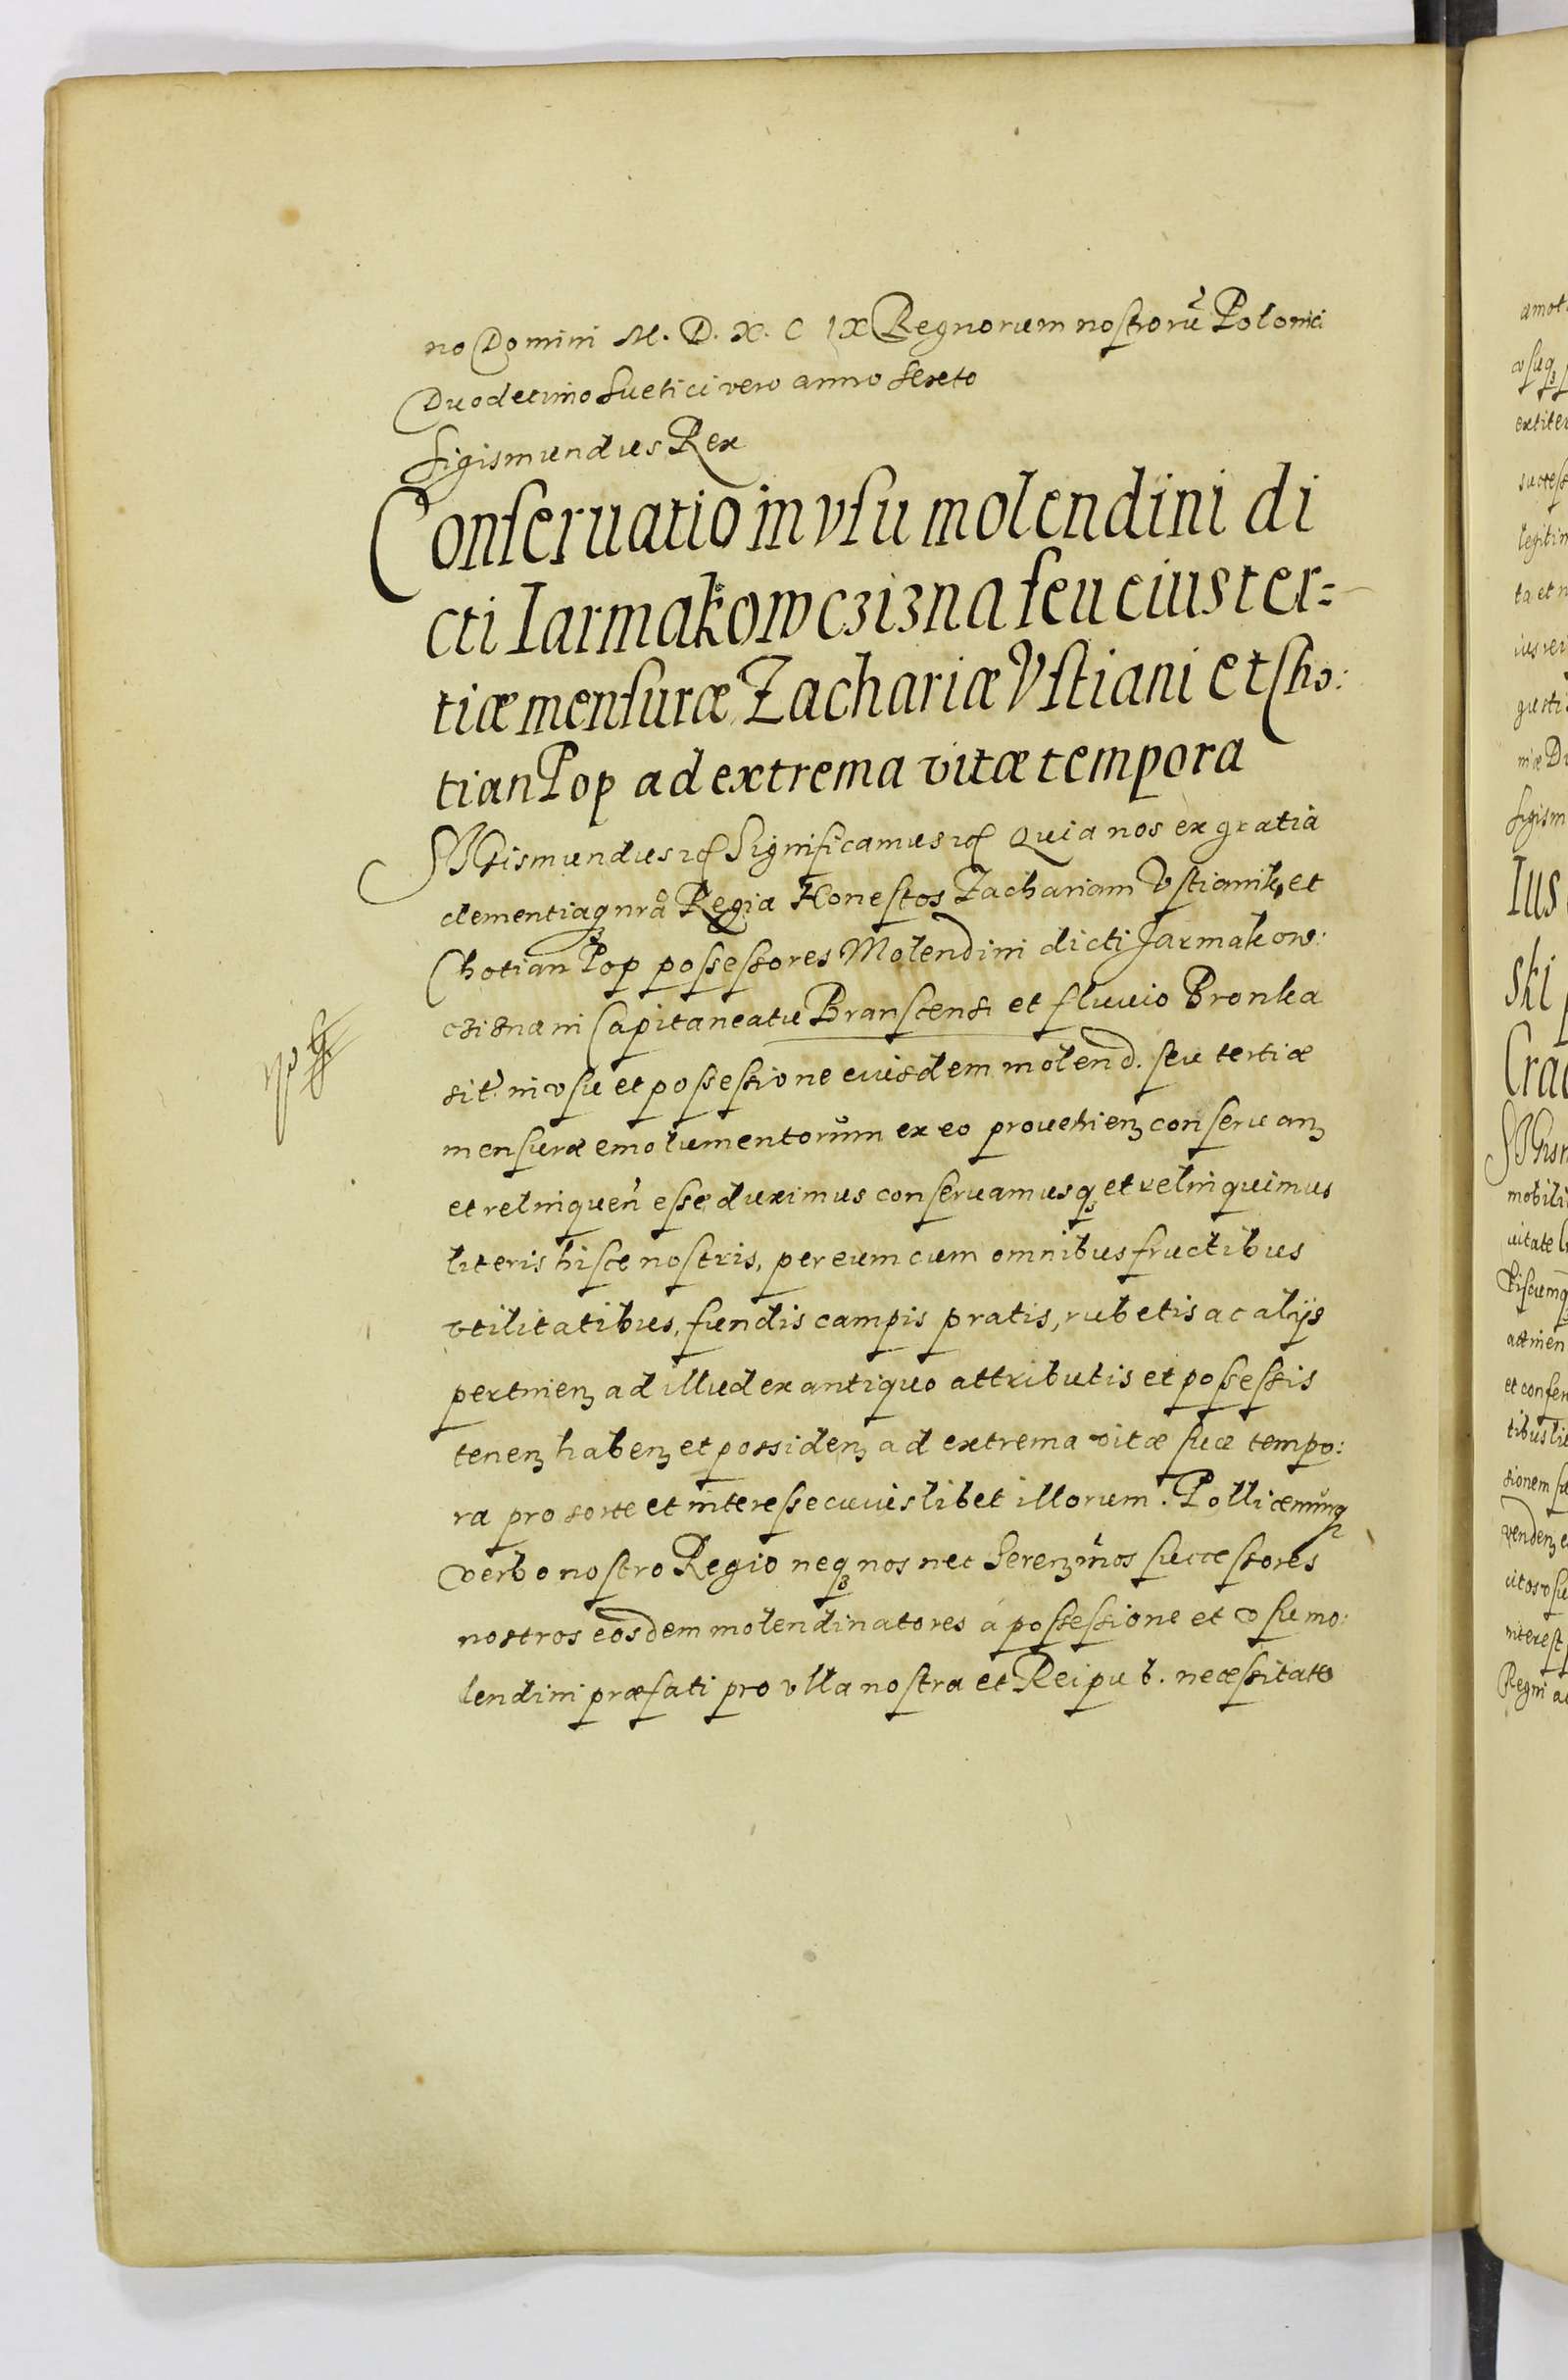 no Domini M. D. X. C IX Regnorum nostrorũ Polonici
Duodecimo Suetici vero anno Sexto
Sigismundus Rex
Conseruatio in vsu molendini di
cti Iarmakowczizna seu eius ter=
tiæ mensuræ Zachariæ Vstiani et Cho:
tian Pop ad extrema vitæ tempora
SIGismundus etc Significamus etc Quia nos ex gratia
clementiaq3 nrã Regia Honestos Zachariam Vstianik et
Chotian Pop possessores Molendini dicti Jarmakow:
czizna in Capitaneatu Branscensi et fluuio Bronka
sit. in vsu et possessione euisdem molend. seu tertiæ
mensuræ emolumentorum ex eo prouenien3 conseruan3
et relinquen̄ esse duximus conseruamusq3 et relinquimus
literis hisce nostris, per eum cum omnibus fructibus
vtilitatibus, fundis campis pratis, rubetis ac alijs
pertinen3 ad illud ex antiquo attributis et possessis
tenen3 haben3 et possiden3 ad extrema vitæ suæ tempo:
ra pro sorte et interesse cuiuslibet illorum. Pollicemurq3
verbo nostro Regio neq3 nos nec Seren3mos successores
nostros eosdem molendinatores á possessione et vsu mo:
lendini præfati pro vlla nostra et Reipub. necessitate